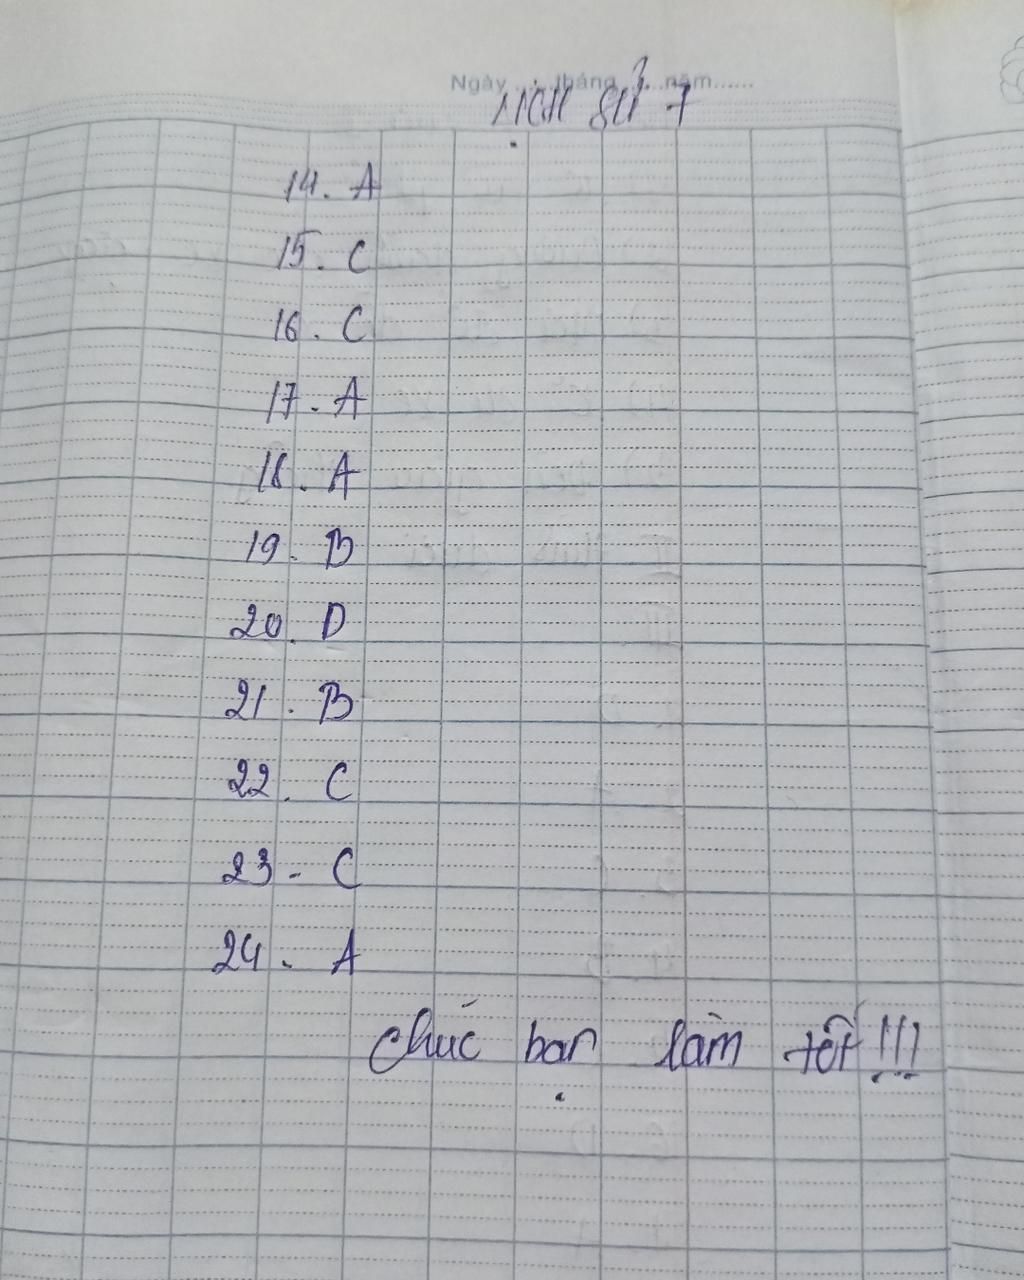 Ngày......tháng......năm......
LỊCH SỬ 7
14. A
15. C
16. C
17. A
18. A
19. B
20. D
21. B
22. C
23. C
24. A
chúc bạn làm tốt!!!